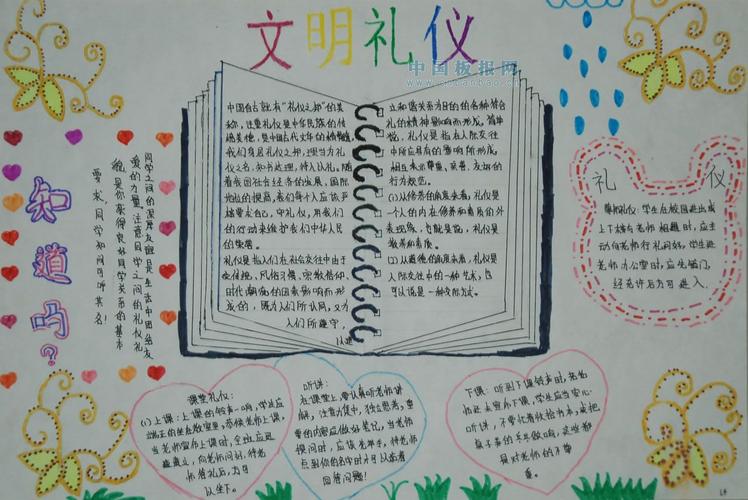 文明礼仪
中国板报网
中国自古就有"礼仪之邦"的美
称，注重礼仪是中华民族的传
统美德，是中国古代文明的精髓
我们身居礼仪之邦，理当为礼
仪之名，知书达理，待人以礼。随
着我国社会经济的发展，国际
地位的提高，我们每个人应该严
格要求自己，守礼仪，用我们
的行动来维护我们中华人民
的尊誉。
礼仪是指人们在社会交往中由于
受传统，风俗习惯，宗教信仰，
时代潮流的因素影响而形
成的，既为人们所认同，又为
人们所遵守，
以建
立和谐关系为目的的各种符合
礼的精神
说，礼仪是指在人际交往
中所应具有的
相互来尊重、亲善、友好的
行为规范。
(1)从修养的角度来看，礼仪是
一个人的内在修养和素质的外
表现，也就是说，礼仪是
教养和素质。
(2)从道德的角度来看，礼仪是
人际交往中的一种艺术，也
可以说是一种交际方式。
知道吗？
同学之间的深厚友谊是生活中团结友
爱的力量 注意同学之间的礼仪礼
貌是你获得良好同学关系的基本
要求，同学如间可呼其名！
礼仪
尊师礼仪：学生在校园进出或
上下楼与老师相遇时，应主
动向老师行礼问好，学生进
老师办公室时，应先敲门，
经允许后方可进入。
课堂礼仪：
(1)上课：上课的铃声一响，学生应
端正的坐在教室里，恭候老师上课，
当老师宣布上课时，全班应迅
速肃立，向老师问好，待老
师答礼后，方可
以坐下。
听讲：
在课堂上，要认真听老师讲
解，注意力集中，独立思考，重
要的内容应做好笔记，当老师
提问时，应该先举手，待老师
点到你的名字时才可以站着
回答问题！
下课：听到下课铃声时，若老
师还未宣布下课，学生应当安心
听讲，不要忙着收拾书本，或把
桌子弄的乒乓做响，这些都
是对老师的不尊
重。